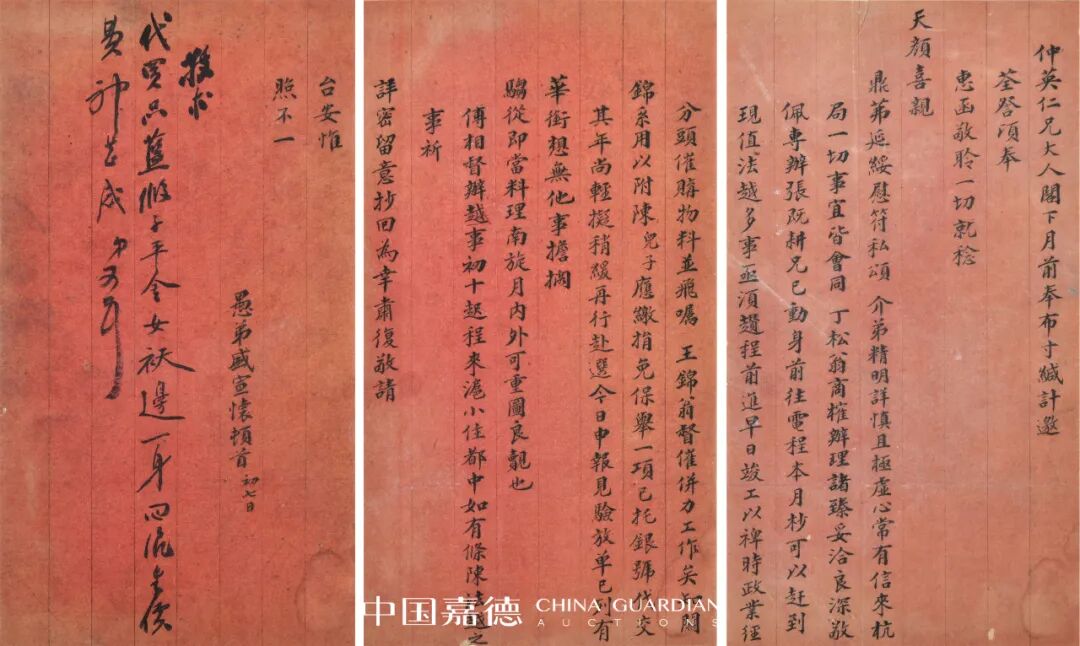 仲英仁兄大人閣下月前奉布寸緘計邀
荃詧頃奉
惠函敬聆一切就稔
天顏喜覲
鼎茀延綏慰符私頌 介弟精明詳慎且極虛心常有信來杭
局一切事宜皆會同 丁松翁商榷辦理諸臻妥洽良深敬
佩專辦張既耕兄已動身前往電程本月杪可以赶到
現值法越多事亟須趲程前進早日竣工以裨時政業經
分頭催購物料並飛囑 王錦翁督催併力工作矣知關
錦系用以附陳兒子應繳捐免保舉一項已托銀號代交
其年尚輕擬稍緩再行赴選今日申報見驗放單已列有
華銜想無他事擔擱
騶從即當料理南旋月內外可重圖良覿也
傅相督辦越事初十起程來滬小住都中如有條陳法越之
事祈
詳密留意抄回為幸肅復敬請
台安惟
照不一
愚弟盛宣懷頓首 初七日
代買品藍緞子平金女袄邊一身四
費神
中国嘉德 CHINA GUARDIAN
AUCTIONS